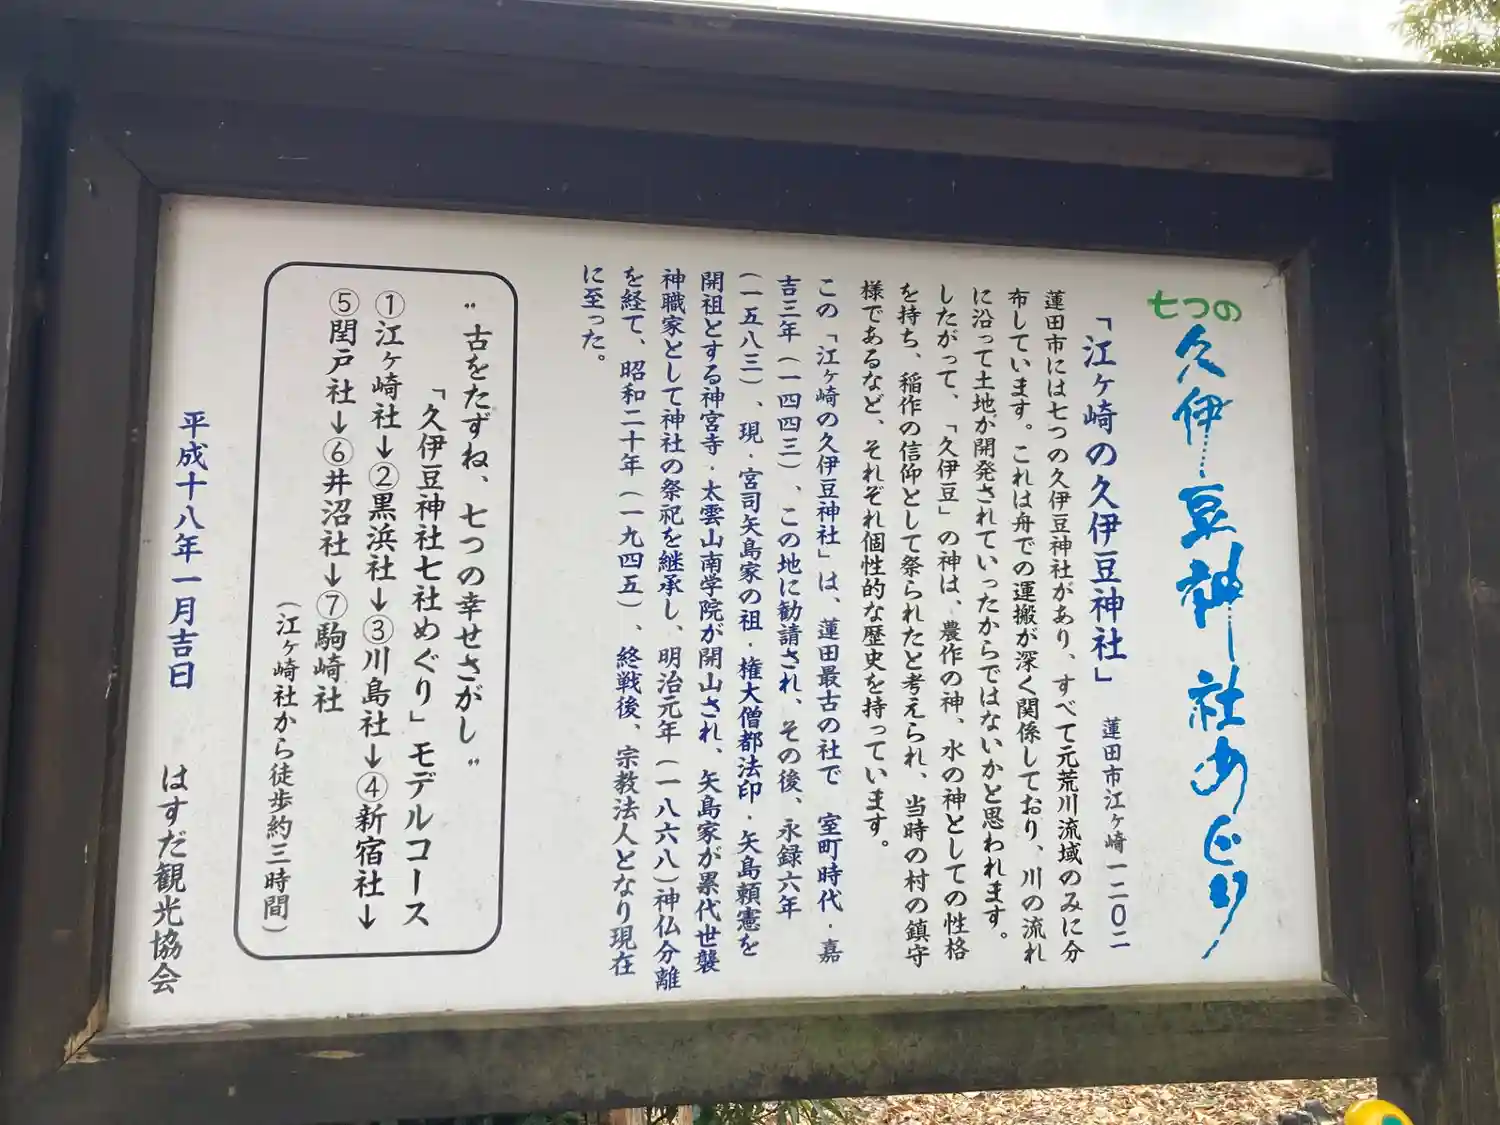 七つの久伊豆神社めぐり
「江ヶ崎の久伊豆神社」 蓮田市江ヶ崎一二〇二
蓮田市には七つの久伊豆神社があり、すべて元荒川流域のみに分
布しています。これは舟での運搬が深く関係しており、川の流れ
に沿って土地が開発されていったからではないかと思われます。
したがって、「久伊豆」の神は、農作の神、水の神としての性格
を持ち、稲作の信仰として祭られたと考えられ、当時の村の鎮守
様であるなど、それぞれ個性的な歴史を持っています。
この「江ヶ崎の久伊豆神社」は、蓮田最古の社で 室町時代・嘉
吉三年(一四四三)、この地に勧請され、その後、永録六年
(一五八三)、現・宮司矢島家の祖・権大僧都法印・矢島頼憲を
開祖とする神宮寺・太雲山南学院が開山され、矢島家が累代世襲
神職家として神社の祭祀を継承し、明治元年(一八六八)神仏分離
を経て、昭和二十年(一九四五)、終戦後、宗教法人となり現在
に至った。
"古をたずね、七つの幸せさがし"
「久伊豆神社七社めぐり」モデルコース
①江ヶ崎社→②黒浜社→③川島社→④新宿社→
⑤閏戸社→⑥井沼社→⑦駒崎社
(江ヶ崎社から徒歩約三時間)
平成十八年一月吉日 はすだ観光協会